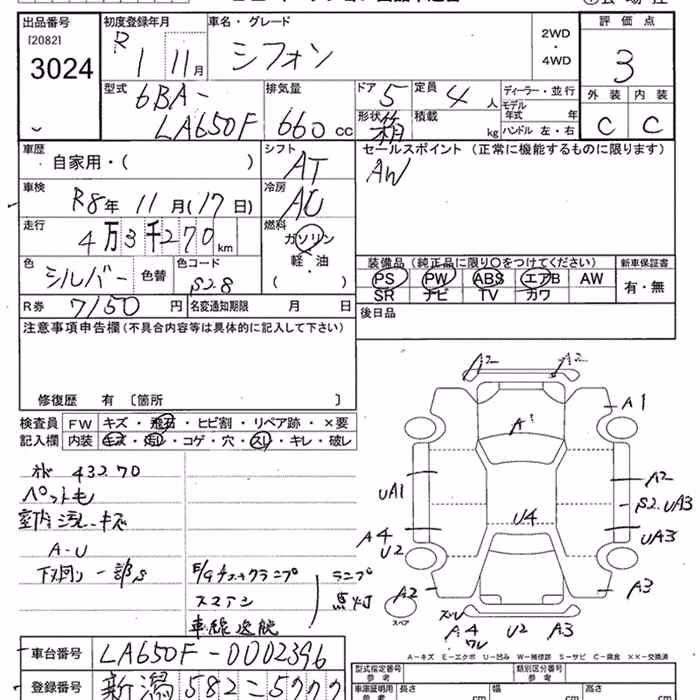 出品番号
[2082]
3024
初度登録年月
R 1 11月
車名・グレード
シフォン
2WD
・
4WD
評価点
3
外装 内装
C C
型式
6BA-
LA650F
排気量
660 cc
ドア 5
形状 箱
定員 4 人
積載 kg
ディーラー・並行
モデル
年式 年
ハンドル 左・右
車歴
自家用・( )
シフト
AT
セールスポイント(正常に機能するものに限ります)
AW
車検
R8年 11月(17日)
冷房
AC
走行
4万3千270 km
燃料
ガソリン
軽・油
( )
色
シルバー
色替
色コード
S28
装備品(純正品に限り○をつけてください)
PS PW ABS エアB AW
SR ナビ TV カワ
新車保証書
有・無
R券 7150円
名変通知期限 月 日
後日品
注意事項申告欄(不具合内容等は具体的に記入して下さい)
修復歴 有 〔箇所 〕
検査員
記入欄
FW キズ・飛石・ヒビ割・リペア跡・×要
内装 キズ・汚レ・コゲ・穴・スレ・キレ・破レ
43270
ペット毛
室内汚レ、キズ
A-U
下廻り一部S
スマアシ
車線逸脱
ランプ
点灯
A2 A2
A1
A1
UA1
A2
S2.UA3
U4
A4
U2
UA3
A2
A3
スペア
スリ
A4
ワレ
U2 A3
A－キズ E－エクボ U－凹み W－補修跡 S－サビ C－腐食 ××－交換済
車台番号
LA650F-0002396
登録番号
新潟582こ5777
型式指定番号
参考
類別区分番号
参考
車庫証明用
参考
長さ cm
幅 cm
高さ cm